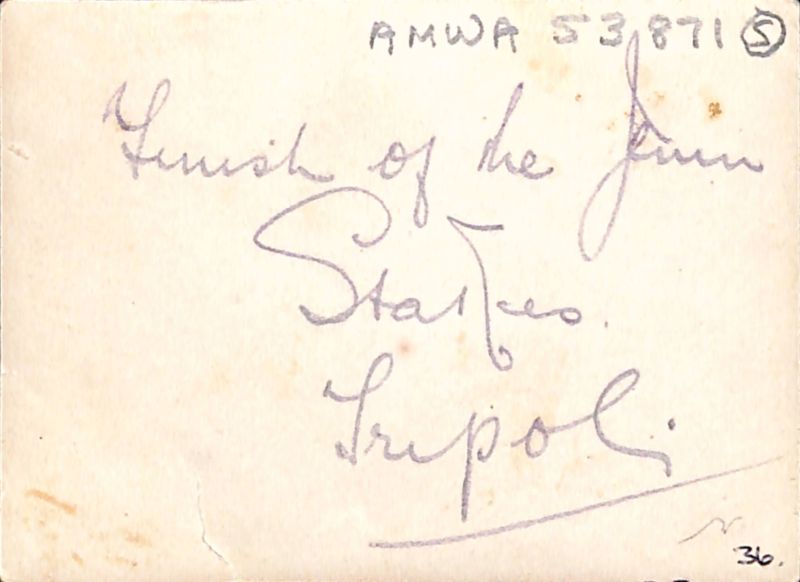 AMWA 53871 5
Finish of the Jenin
Stakes.
Tripoli
36.